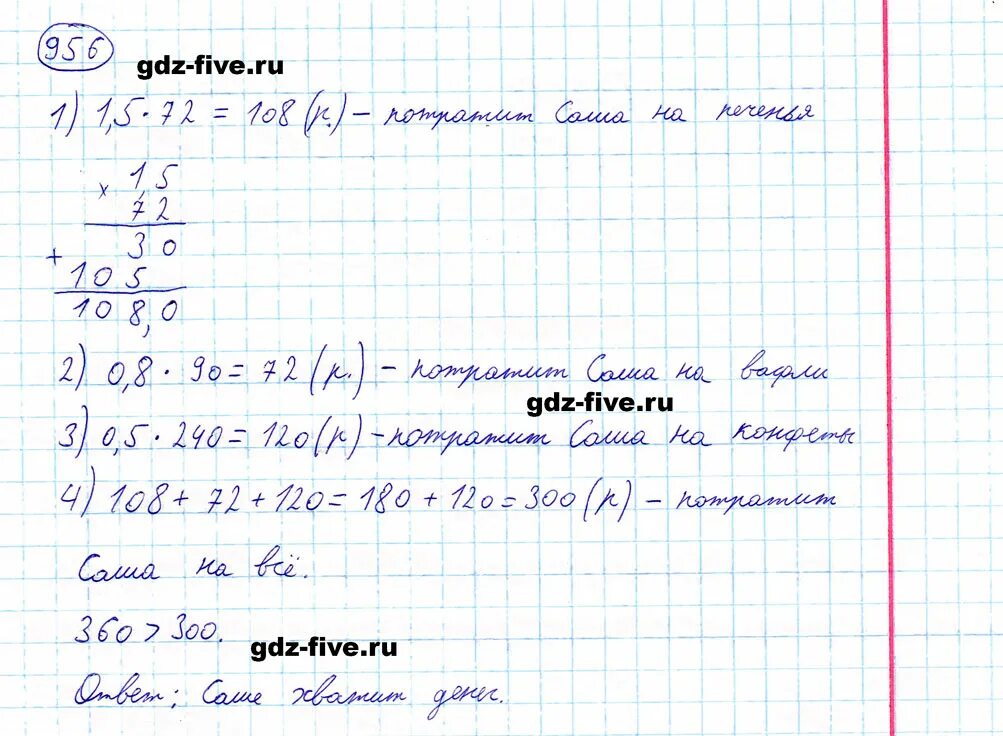 956
gdz-five.ru
1) 1,5 · 72 = 108 (р.) – потратит Саша на печенья
× 1,5
72
+ 30
105
108,0
2) 0,8 · 90 = 72 (р.) – потратит Саша на вафли
gdz-five.ru
3) 0,5 · 240 = 120 (р) – потратит Саша на конфеты
4) 108 + 72 + 120 = 180 + 120 = 300 (р) – потратит
Саша на всё.
360 > 300.
gdz-five.ru
Ответ: Саше хватит денег.